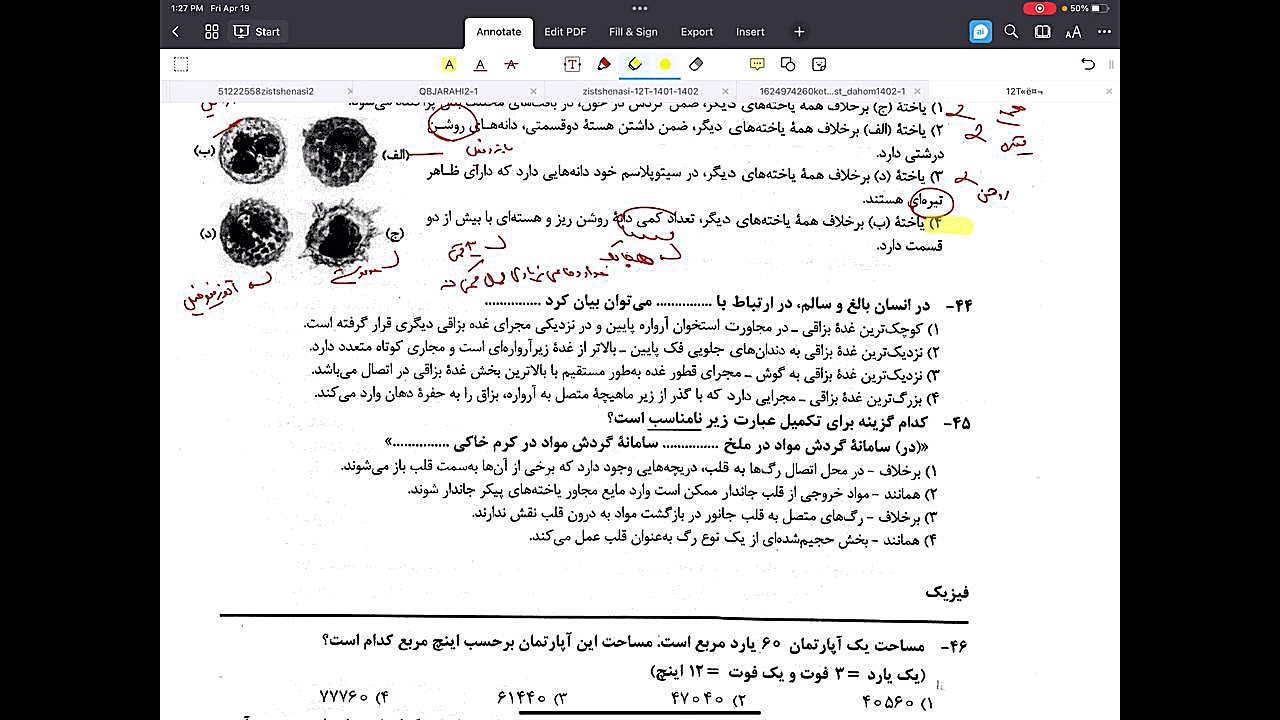 1:27 PM Fri Apr 19
50%
Start
Annotate Edit PDF Fill & Sign Export Insert
ai
AA
51222558zistshenasi2 QBJARAHI2-1 zistshenasi-12T-1401-1402 1624974260ket...st_dahom1402-1 12T«ë¤¬
۱) یاختهٔ (ج) برخلاف همهٔ یاخته‌های دیگر، ضمن گردش در خون، در بافت‌های مختلف بدن پراکنده می‌شوند.
۲) یاختهٔ (الف) برخلاف همهٔ یاخته‌های دیگر، ضمن داشتن هستهٔ دوقسمتی، دانه‌های روشن
درشتی دارد.
۳) یاختهٔ (د) برخلاف همهٔ یاخته‌های دیگر، در سیتوپلاسم خود دانه‌هایی دارد که دارای ظاهر
تیره‌ای هستند.
۴) یاختهٔ (ب) برخلاف همهٔ یاخته‌های دیگر، تعداد کمی دانهٔ روشن ریز و هسته‌ای با بیش از دو
قسمت دارد.
(الف)
(ب)
(ج)
(د)
۴۴- در انسان بالغ و سالم، در ارتباط با .............. می‌توان بیان کرد ..............
۱) کوچک‌ترین غدهٔ بزاقی – در مجاورت استخوان آرواره پایین و در نزدیکی مجرای غده بزاقی دیگری قرار گرفته است.
۲) نزدیک‌ترین غدهٔ بزاقی به دندان‌های جلویی فک پایین – بالاتر از غدهٔ زیرآرواره‌ای است و مجاری کوتاه متعدد دارد.
۳) نزدیک‌ترین غدهٔ بزاقی به گوش – مجرای قطور غده به‌طور مستقیم با بالاترین بخش غدهٔ بزاقی در اتصال می‌باشد.
۴) بزرگ‌ترین غدهٔ بزاقی – مجرایی دارد که با گذر از زیر ماهیچهٔ متصل به آرواره، بزاق را به حفرهٔ دهان وارد می‌کند.
۴۵- کدام گزینه برای تکمیل عبارت زیر نامناسب است؟
«(در) سامانهٔ گردش مواد در ملخ .............. سامانهٔ گردش مواد در کرم خاکی ..............»
۱) برخلاف – در محل اتصال رگ‌ها به قلب، دریچه‌هایی وجود دارد که برخی از آن‌ها به‌سمت قلب باز می‌شوند.
۲) همانند – مواد خروجی از قلب جاندار ممکن است وارد مایع مجاور یاخته‌های پیکر جاندار شوند.
۳) برخلاف – رگ‌های متصل به قلب جانور در بازگشت مواد به درون قلب نقش ندارند.
۴) همانند – بخش حجیم‌شده‌ای از یک نوع رگ به‌عنوان قلب عمل می‌کند.
فیزیک
۴۶- مساحت یک آپارتمان ۶۰ یارد مربع است. مساحت این آپارتمان برحسب اینچ مربع کدام است؟
(یک یارد = ۳ فوت و یک فوت = ۱۲ اینچ)
۱) ۴۰۵۶۰ ۲) ۴۷۰۴۰ ۳) ۶۱۴۴۰ ۴) ۷۷۷۶۰